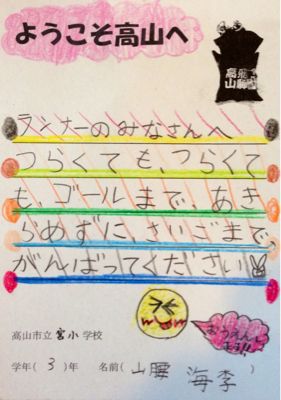 ようこそ高山へ
飛騨
高山
ランナーのみなさんへ
つらくても、つらくて
も、ゴールまで、あき
らめずに、さいごまで、
がんばってください
おうえん
してます!!
高山市立 宮小 学校
学年( 3 )年 名前( 山腰 海季 )